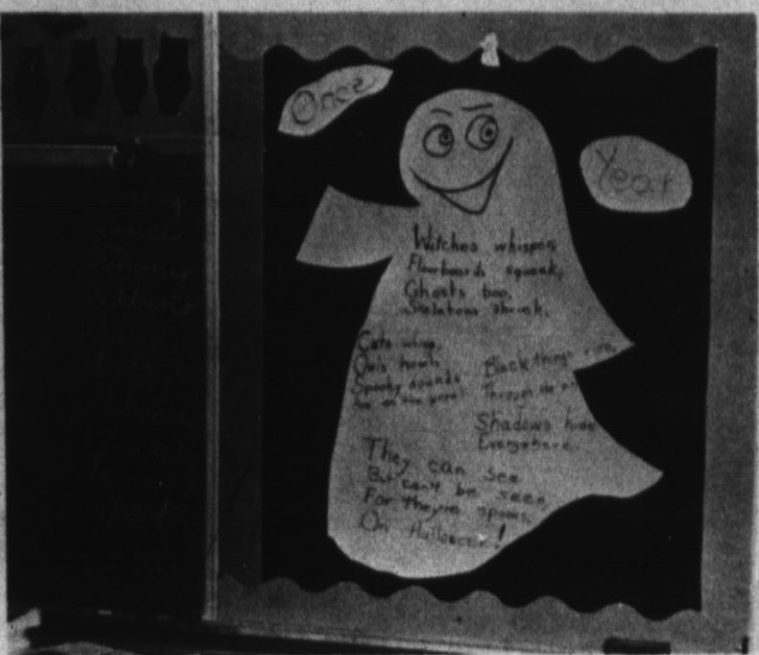 Once
Year
Witches whisper,
Floorboards squeak,
Ghosts boo,
Skeletons shriek.
Cats
Owls howl,
Spooky sounds
on the prowl
Black things
Through the
Shadows hide
Everywhere.
They can see
But can't be seen,
For they're spooks
On Halloween!